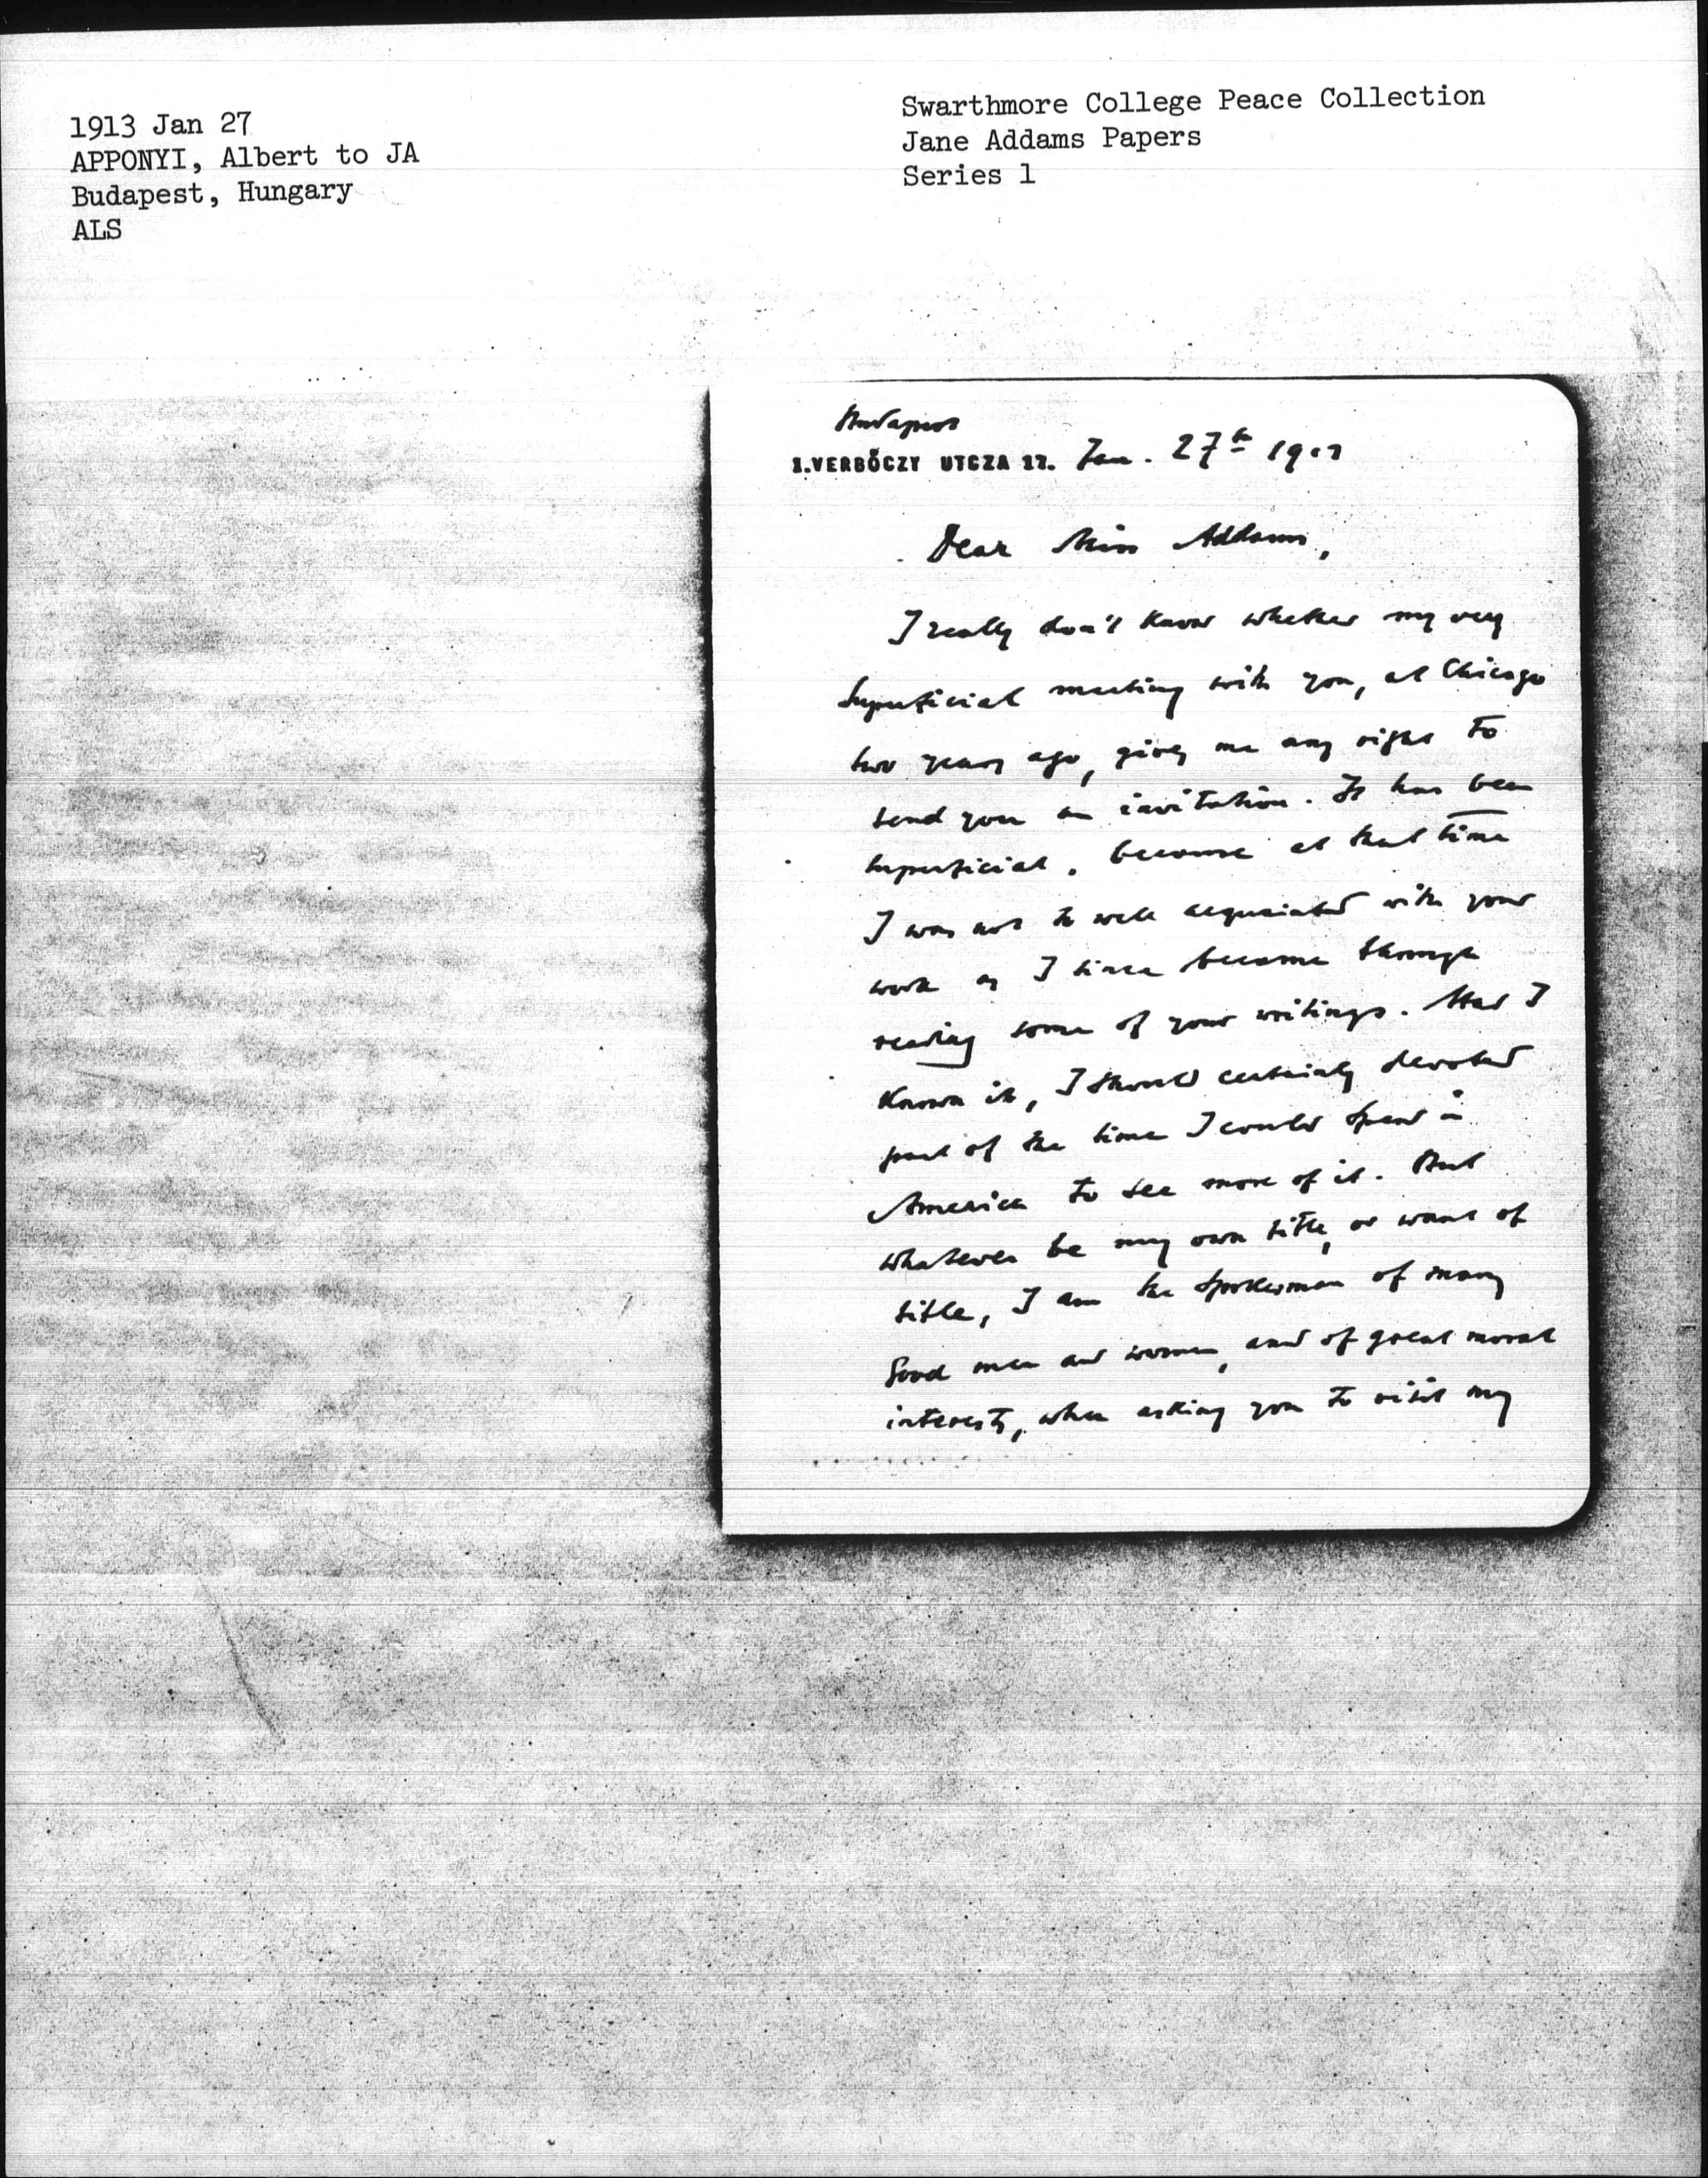 1913 Jan 27
APPONYI, Albert to JA
Budapest, Hungary
ALS
Swarthmore College Peace Collection
Jane Addams Papers
Series 1
Budapest
I. VERBŐCZY UTCZA 17. Jan. 27th 1913
Dear Miss Addams,
I really don't know whether my very
superficial meeting with you, at Chicago
two years ago, gives me any right to
send you an invitation. It has been
superficial, because at that time
I was not so well acquainted with your
work as I since became through
reading some of your writings. Had I
known it, I should certainly devoted
part of the time I could spend in
America to see more of it. But
whatever be my own title, or want of
title, I am the spokesman of many
good men and women, and of great moral
interests, when asking you to visit my